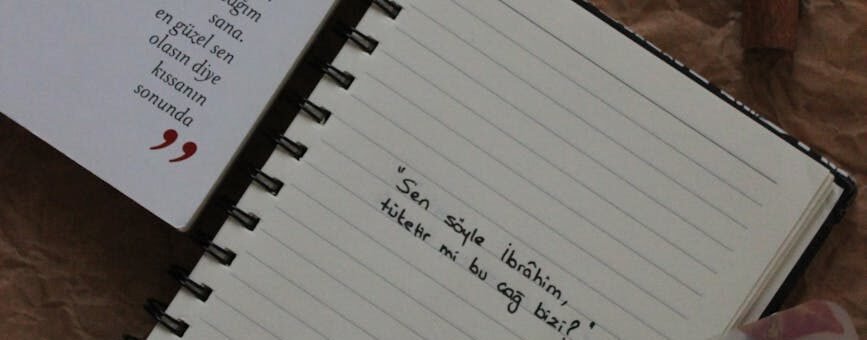 sana.
en güzel sen
olasın diye
kıssanın
sonunda
”
"Sen söyle İbrâhim,
tüketir mi bu çağ bizi?"